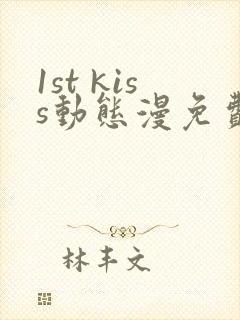 1st kis
s動態漫免費
林丰文